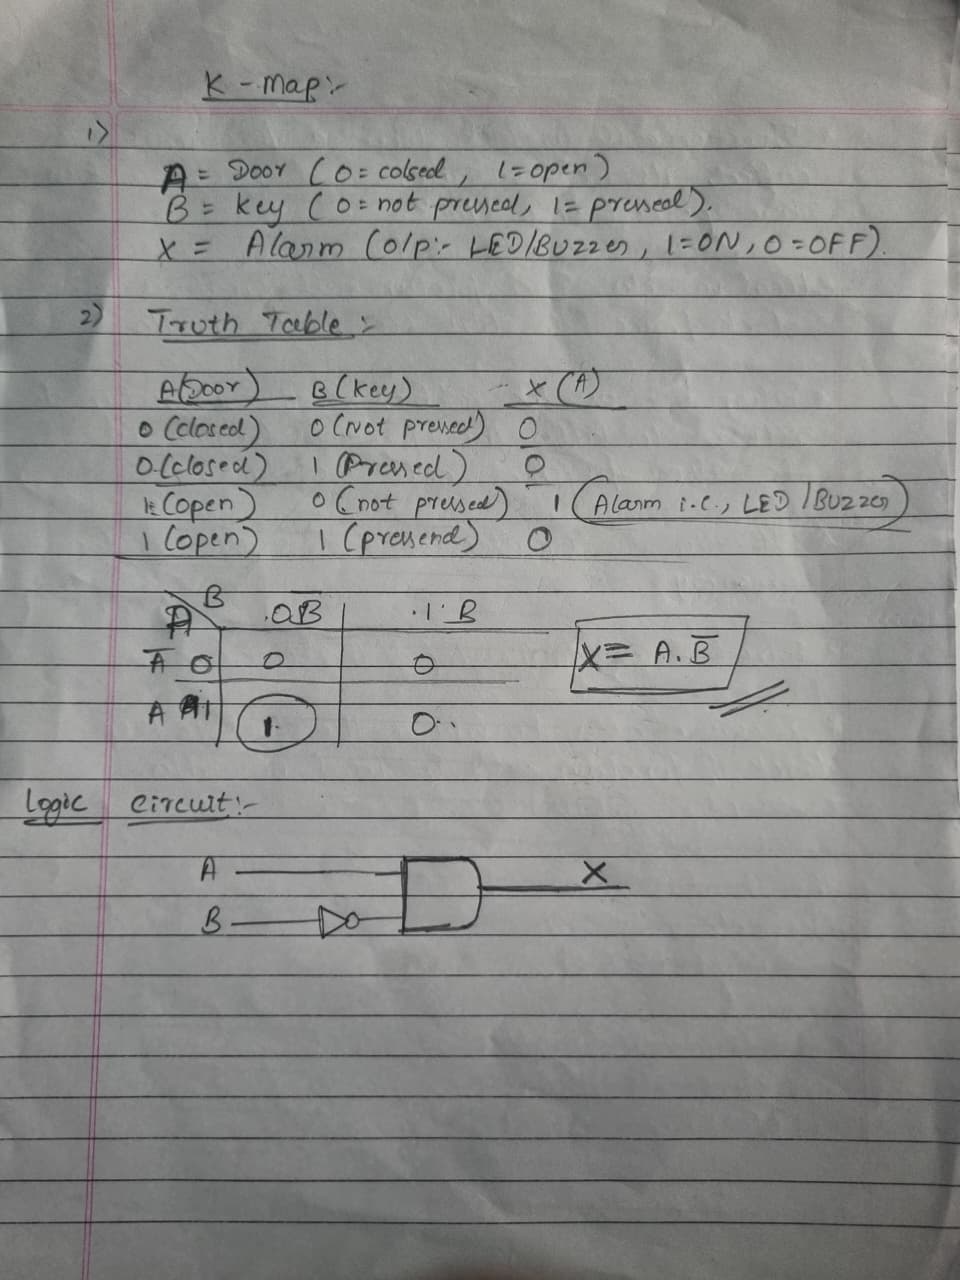 K - Map:-
1)
A = Door ( 0 = colsed , 1 = open )
B = key ( 0 = not pressed, 1 = pressed ).
X = Alarm (o/p:- LED/BUZZER, 1=ON, 0=OFF).
2) Truth Table :-
A(Door) B (key) X (A)
0 (closed) 0 (Not pressed) 0
0 (closed) 1 (Pressed) 0
1 (open) 0 (not pressed) 1 (Alarm i.e., LED / BUZZER)
1 (open) 1 (pressend) 0
A B 0 B̅ 1 B
A̅ 0 0 0
A 1 1 0
X = A.B̅
Logic circuit:-
A X
B